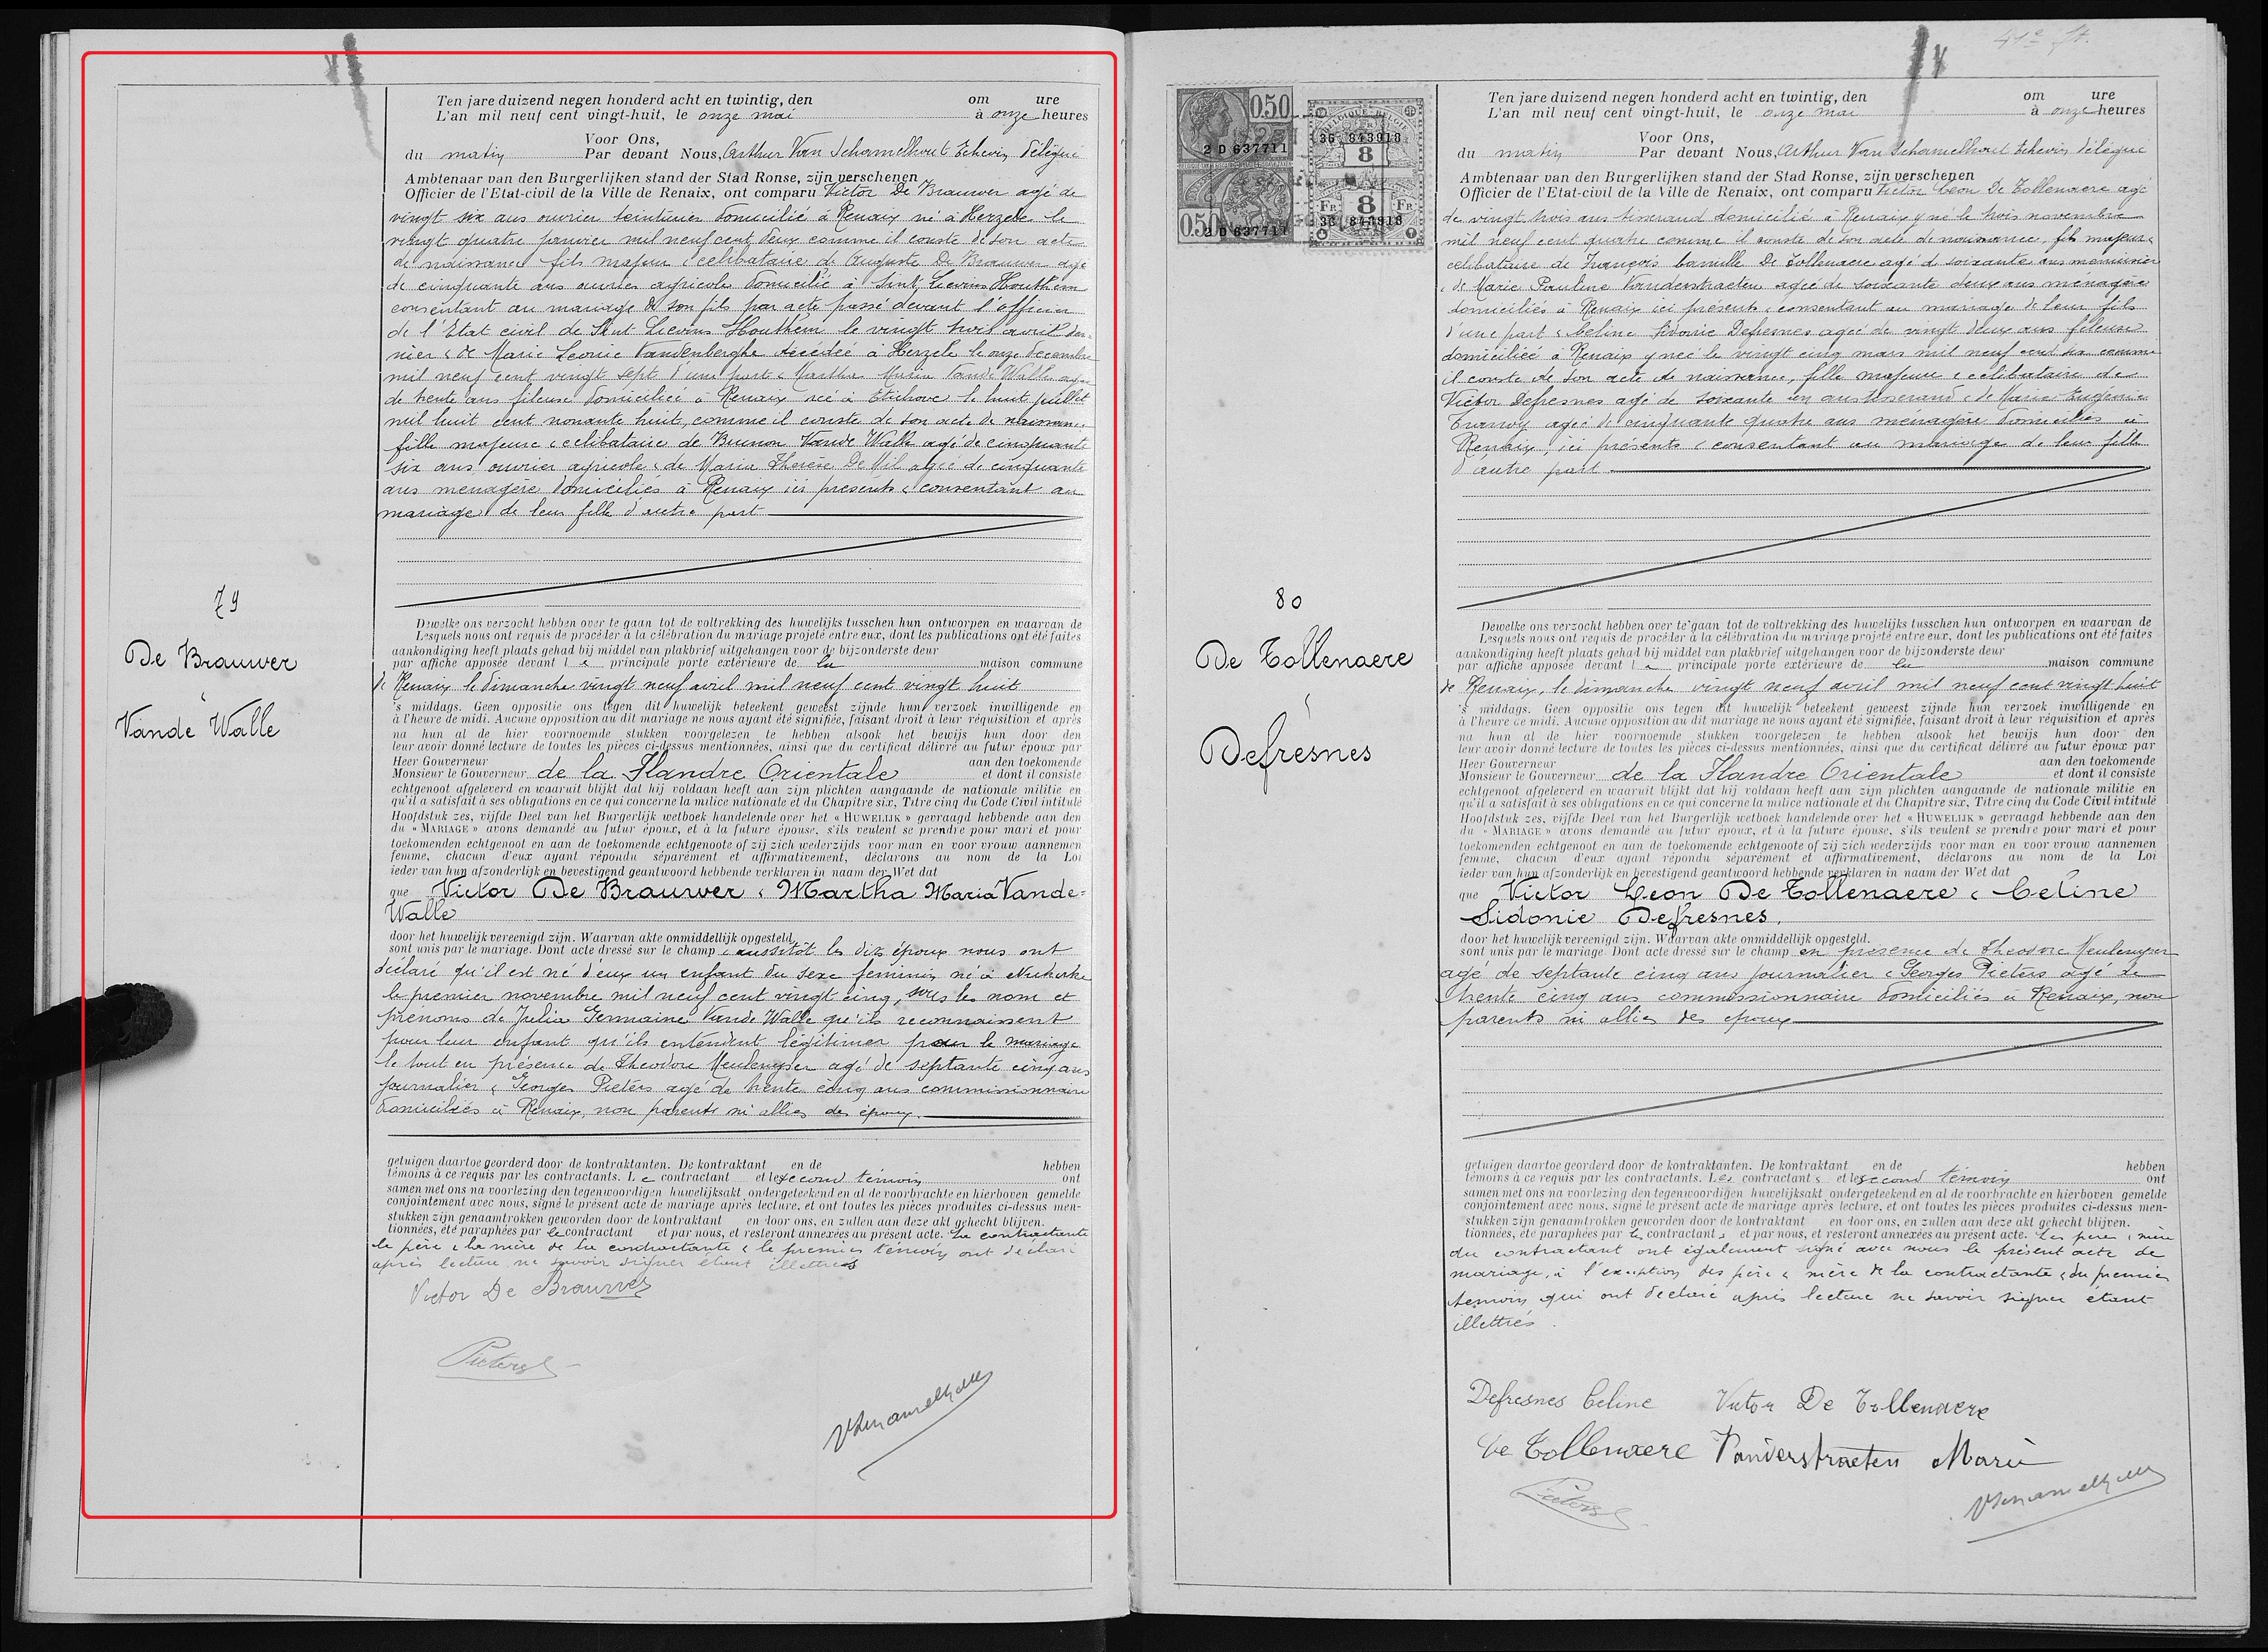 Ten jare duizend negen honderd acht en twintig, den om ure
L'an mil neuf cent vingt-huit, le onze mai à onze heures
Voor Ons,
du matin Par devant Nous, Arthur Van Schamelhout Echevin délégué
Ambtenaar van den Burgerlijken stand der Stad Ronse, zijn verschenen
Officier de l'Etat-civil de la Ville de Renaix, ont comparu Victor De Brauwer agé de
vingt six ans ouvrier teinturier domicilié à Renaix né à Herzele le
vingt quatre janvier mil neuf cent deux comme il conste de son acte
de naissance fils majeur & celibataire de Auguste De Brauwer agé
de cinquante ans ouvrier agricole domicilié à Sint Lievens Houthem
consentant au mariage de son fils par acte passé devant l'officier
de l'Etat civil de Sint Lievens Houthem le vingt huit avril der
nier & de Marie Leonie Vandenberghe décédée à Herzele le onze decembre
mil neuf cent vingt sept d'une part & Martha Maria Vande Walle agée
de trente ans fileuse domiciliée à Renaix née à Etichove le huit juillet
mil huit cent nonante huit, comme il conste de son acte de naissance
fille majeure & celibataire de Vande Walle agé de cinquante
six ans ouvrier agricole & de Maria Therèse De Wil agée de cinquante
ans menagère domiciliés à Renaix ici présents & consentant au
mariage de leur fille d'autre part
79
De Brauwer
&
Vande Walle
Dewelke ons verzocht hebben over te gaan tot de voltrekking des huwelijks tusschen hun ontworpen en waarvan de
Lesquels nous ont requis de procéder à la célébration du mariage projeté entre eux, dont les publications ont été faites
aankondiging heeft plaats gehad bij middel van plakbrief uitgehangen voor de bijzonderste deur
par affiche apposée devant l a principale porte extérieure de la maison commune
de Renaix le dimanche vingt neuf avril mil neuf cent vingt huit
's middags. Geen oppositie ons tegen dit huwelijk beteekent geweest zijnde hun verzoek inwilligende en
à l'heure de midi. Aucune opposition au dit mariage ne nous ayant été signifiée, faisant droit à leur réquisition et après
na hun al de hier voornoemde stukken voorgelezen te hebben alsook het bewijs hun door den
leur avoir donné lecture de toutes les pièces ci-dessus mentionnées, ainsi que du certificat délivré au futur époux par
Heer Gouverneur aan den toekomende
Monsieur le Gouverneur de la Flandre Orientale et dont il consiste
echtgenoot afgeleverd en waaruit blijkt dat hij voldaan heeft aan zijn plichten aangaande de nationale militie en
qu'il a satisfait à ses obligations en ce qui concerne la milice nationale et du Chapitre six, Titre cinq du Code Civil intitulé
Hoofdstuk zes, vijfde Deel van het Burgerlijk wetboek handelende over het « HUWELIJK » gevraagd hebbende aan den
du « MARIAGE » avons demandé au futur époux, et à la future épouse, s'ils veulent se prendre pour mari et pour
toekomenden echtgenoot en aan de toekomende echtgenoote of zij zich wederzijds voor man en voor vrouw aannemen
femme, chacun d'eux ayant répondu séparément et affirmativement, déclarons au nom de la Loi
ieder van hun afzonderlijk en bevestigend geantwoord hebbende verklaren in naam der Wet dat
que Victor De Brauwer & Martha Maria Vande=
Walle
door het huwelijk vereenigd zijn. Waarvan akte onmiddellijk opgesteld.
sont unis par le mariage. Dont acte dressé sur le champ & aussitôt les dits époux nous ont
déclaré qu'il est né d'eux un enfant du sexe feminin né à Nukerke
le premier novembre mil neuf cent vingt cinq, sous les nom et
prénoms de Julia Germaine Vande Walle qu'ils reconnaissent
pour leur enfant qu'ils entendent légitimer par le mariage
le tout en présence de Theodore Meuleneyser agé de septante cinq ans
journalier & Georges Pieters agé de trente cinq ans commissionnaire
domiciliés à Renaix, non parents ni alliés des époux.
getuigen daartoe georderd door de kontraktanten. De kontraktant en de hebben
témoins à ce requis par les contractants. L e contractant et le second témoin ont
samen met ons na voorlezing den tegenwoordigen huwelijksakt ondergeteekend en al de voorbrachte en hierboven gemelde
conjointement avec nous, signé le présent acte de mariage après lecture, et ont toutes les pièces produites ci-dessus men-
stukken zijn genaamtrokken geworden door de kontraktant en door ons, en zullen aan deze akt gehecht blijven.
tionnées, été paraphées par le contractant et par nous, et resteront annexées au présent acte. La contractante
le père & la mère de la contractante & le premier témoin ont déclaré
après lecture ne savoir signer étant illettrés
Victor De Brauwer
Pieters
41e ft.
0.50
2 D 637711
0.50
2 D 637711
BELGIQUE-BELGIE
36 843918
8
FR 8 FR
36 843918
Ten jare duizend negen honderd acht en twintig, den om ure
L'an mil neuf cent vingt-huit, le onze mai à onze heures
Voor Ons,
du matin Par devant Nous, Arthur Van Schamelhout Echevin délégué
Ambtenaar van den Burgerlijken stand der Stad Ronse, zijn verschenen
Officier de l'Etat-civil de la Ville de Renaix, ont comparu Victor Leon De Tollenaere agé
de vingt trois ans tisserand domicilié à Renaix y né le trois novembre
mil neuf cent quatre comme il conste de son acte de naissance, fils majeur &
celibataire de François Camille De Tollenaere agé de soixante ans menuisier
& de Marie Pauline Vanderstraeten agée de soixante deux ans ménagère
domiciliés à Renaix ici présents & consentant au mariage de leur fils
d'une part & Celine Sidonie Defresnes agée de vingt deux ans fileuse
domiciliée à Renaix y née le vingt cinq mars mil neuf cent six comme
il conste de son acte de naissance, fille majeure & celibataire de
Victor Defresnes agé de soixante un ans tisserand & de Marie Eugénie
agée de cinquante quatre ans ménagère domiciliés à
Renaix, ici présents & consentant au mariage de leur fille
d'autre part
80
De Tollenaere
&
Defresnes
Dewelke ons verzocht hebben over te gaan tot de voltrekking des huwelijks tusschen hun ontworpen en waarvan de
Lesquels nous ont requis de procéder à la célébration du mariage projeté entre eux, dont les publications ont été faites
aankondiging heeft plaats gehad bij middel van plakbrief uitgehangen voor de bijzonderste deur
par affiche apposée devant l a principale porte extérieure de la maison commune
de Renaix, le dimanche vingt neuf avril mil neuf cent vingt huit
's middags. Geen oppositie ons tegen dit huwelijk beteekent geweest zijnde hun verzoek inwilligende en
à l'heure de midi. Aucune opposition au dit mariage ne nous ayant été signifiée, faisant droit à leur réquisition et après
na hun al de hier voornoemde stukken voorgelezen te hebben alsook het bewijs hun door den
leur avoir donné lecture de toutes les pièces ci-dessus mentionnées, ainsi que du certificat délivré au futur époux par
Heer Gouverneur aan den toekomende
Monsieur le Gouverneur de la Flandre Orientale et dont il consiste
echtgenoot afgeleverd en waaruit blijkt dat hij voldaan heeft aan zijn plichten aangaande de nationale militie en
qu'il a satisfait à ses obligations en ce qui concerne la milice nationale et du Chapitre six, Titre cinq du Code Civil intitulé
Hoofdstuk zes, vijfde Deel van het Burgerlijk wetboek handelende over het « HUWELIJK » gevraagd hebbende aan den
du « MARIAGE » avons demandé au futur époux, et à la future épouse, s'ils veulent se prendre pour mari et pour
toekomenden echtgenoot en aan de toekomende echtgenoote of zij zich wederzijds voor man en voor vrouw aannemen
femme, chacun d'eux ayant répondu séparément et affirmativement, déclarons au nom de la Loi
ieder van hun afzonderlijk en bevestigend geantwoord hebbende verklaren in naam der Wet dat
que Victor Leon De Tollenaere & Celine
Sidonie Defresnes.
door het huwelijk vereenigd zijn. Waarvan akte onmiddellijk opgesteld.
sont unis par le mariage. Dont acte dressé sur le champ en présence de Theodore Meuleneyser
agé de septante cinq ans journalier & Georges Pieters agé de
trente cinq ans commissionnaire domiciliés à Renaix, non
parents ni alliés des époux
getuigen daartoe georderd door de kontraktanten. De kontraktant en de hebben
témoins à ce requis par les contractants. Les contractants et le second témoin ont
samen met ons na voorlezing den tegenwoordigen huwelijksakt ondergeteekend en al de voorbrachte en hierboven gemelde
conjointement avec nous, signé le présent acte de mariage après lecture, et ont toutes les pièces produites ci-dessus men-
stukken zijn genaamtrokken geworden door de kontraktant en door ons, en zullen aan deze akt gehecht blijven.
tionnées, été paraphées par le contractant s et par nous, et resteront annexées au présent acte. Les père & mère
du contractant ont également signé avec nous le présent acte de
mariage, à l'exception des père & mère de la contractante & du premier
témoin qui ont déclaré après lecture ne savoir signer étant
illettrés.
Defresnes Celine Victor De Tollenaere
De Tollenaere Vanderstraeten Marie
Pieters